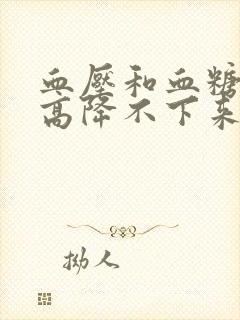 血壓和血糖
高降不下来
拗人